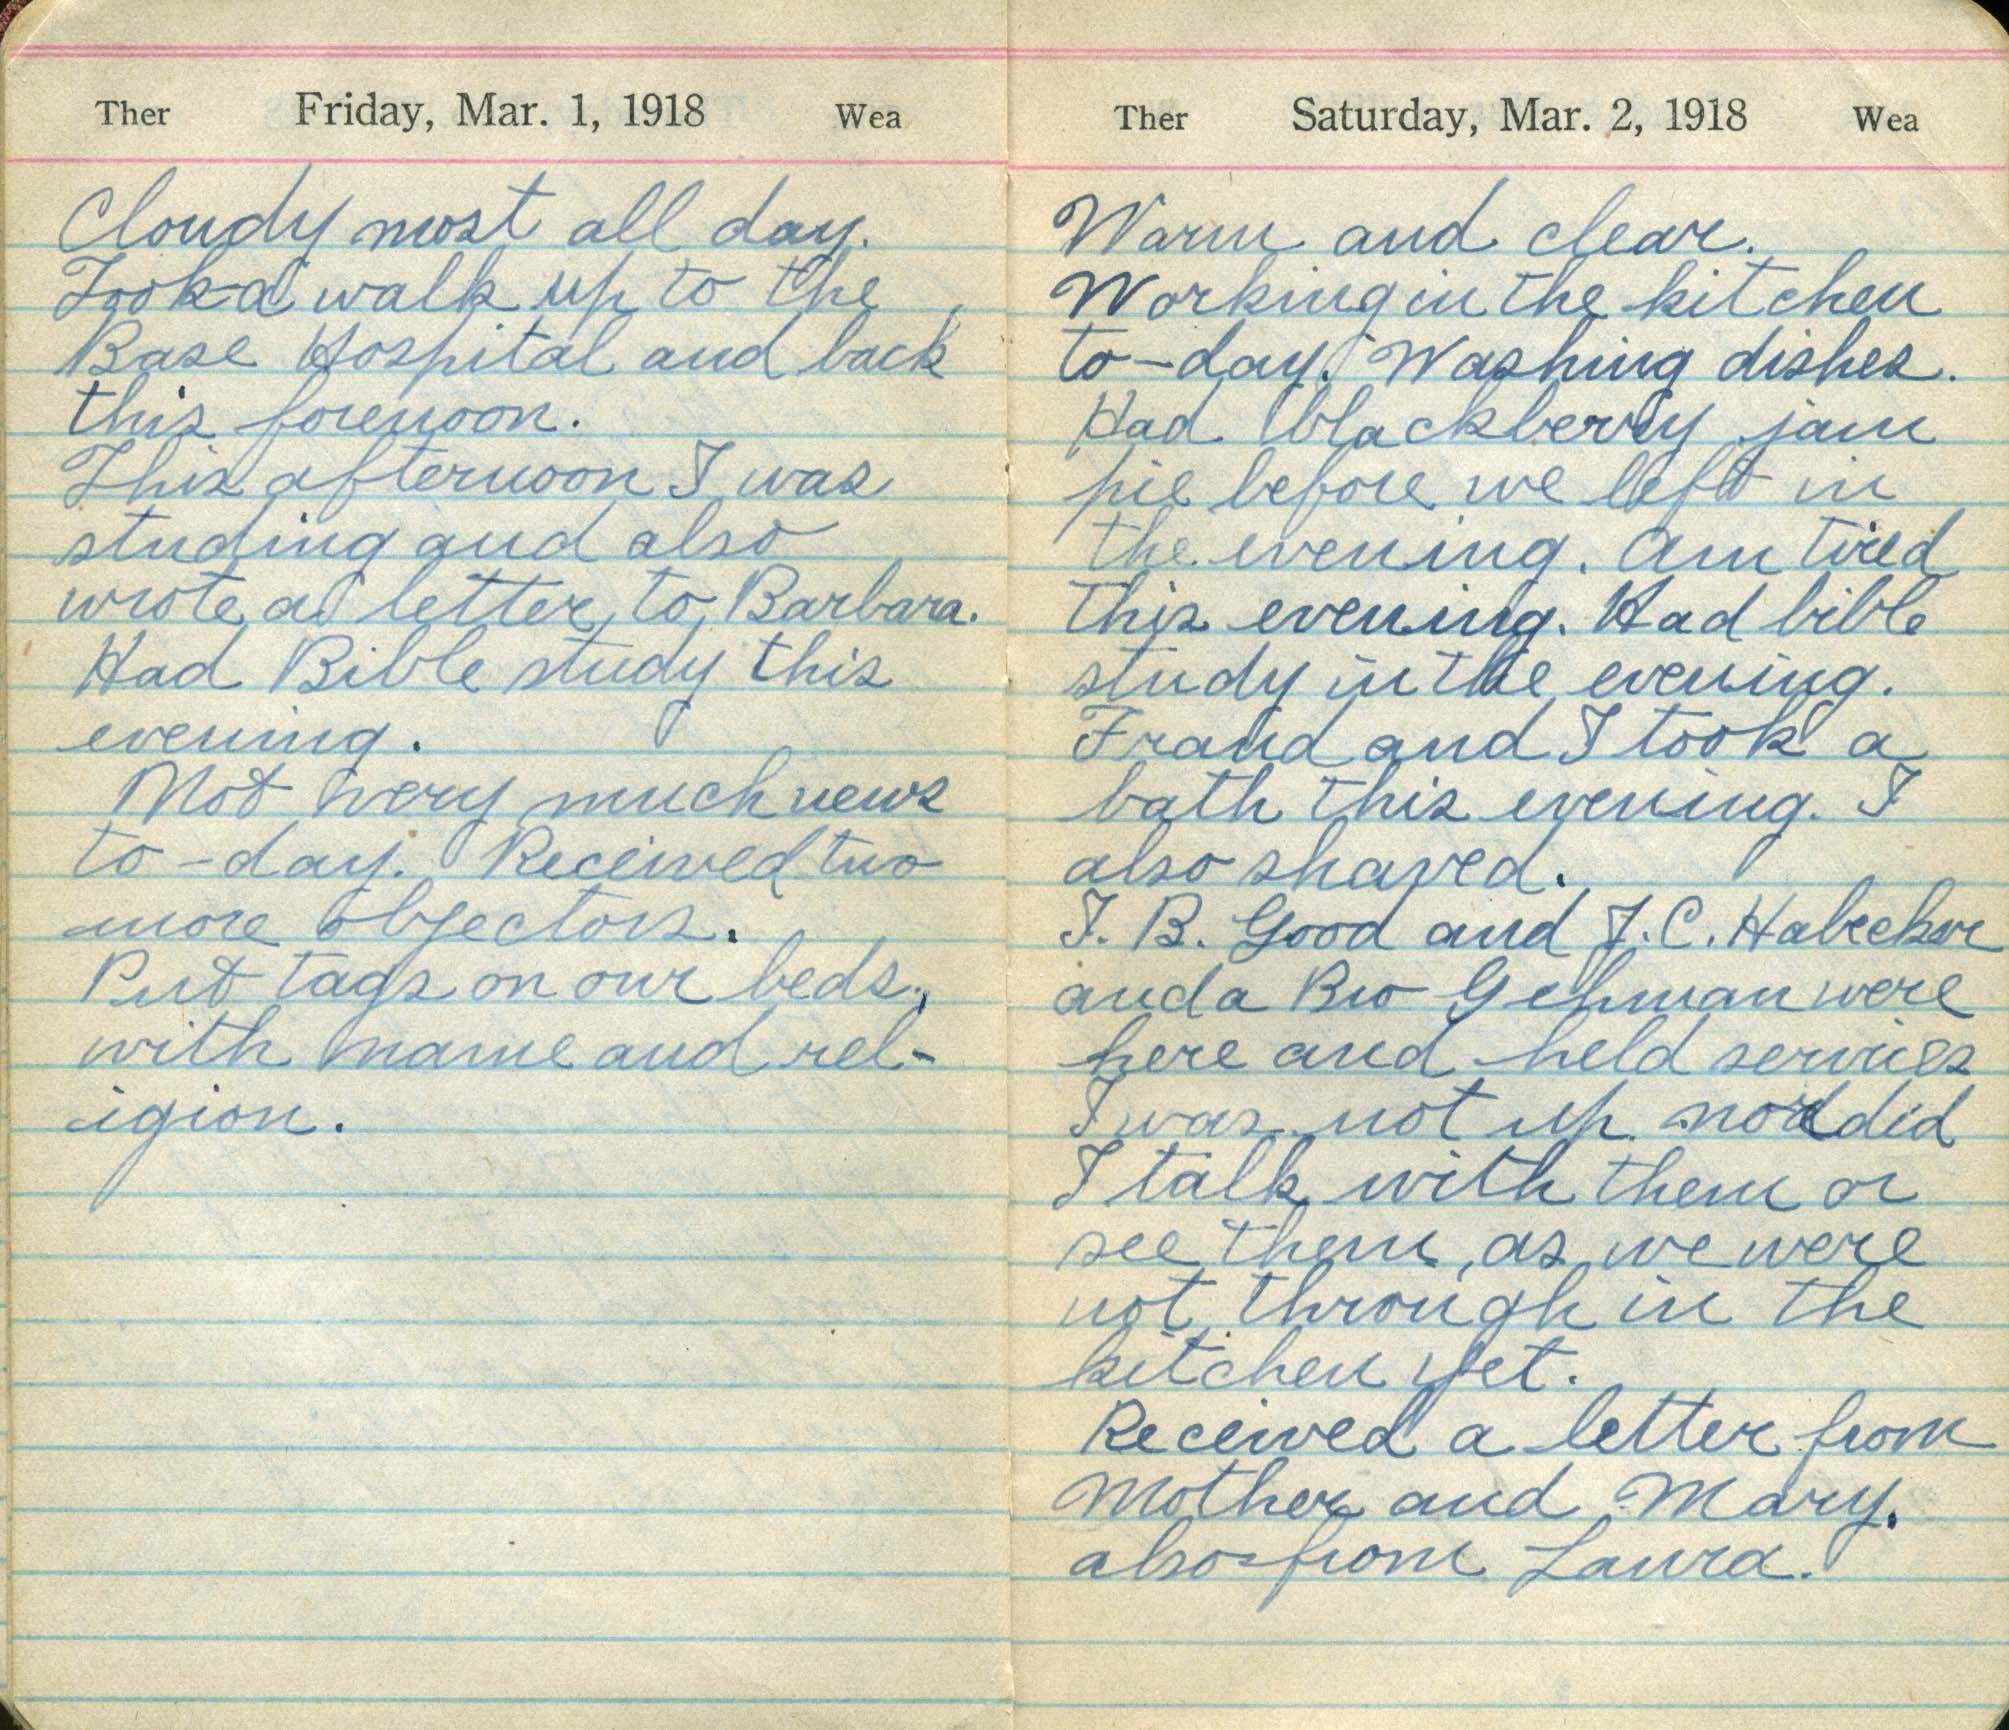 Ther Friday, Mar. 1, 1918 Wea
Cloudy most all day.
Took a walk up to the
Base Hospital and back
this forenoon.
This afternoon I was
studing and also
wrote a letter to Barbara.
Had Bible study this
evening.
Not very much news
to-day. Received two
more objectors.
Put tags on our beds,
with name and rel-
igion.
Ther Saturday, Mar. 2, 1918 Wea
Warm and clear.
Working in the kitchen
to-day. Washing dishes.
Had blackberry jam
pie before we left in
the evening. Am tired
this evening. Had bible
study in the evening.
and I took a
bath this evening. I
also shaved.
I. B. Good and J. C. Habecker
and a Bro Gehman were
here and held servies
I was not up nor did
I talk with them or
see them, as we were
not through in the
kitchen yet.
Received a letter from
Mother and Mary.
also from Laura.